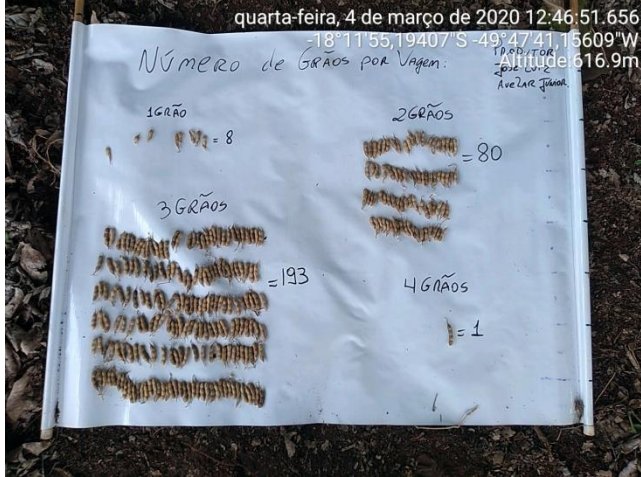 quarta-feira, 4 de março de 2020 12:46:51.656
-18°11'55,19407"S -49°47'41,15609"W
Altitude:616.9m
NÚMERO de GRÃOS POR VAGEM:
PRODUTOR:
JOSÉ LUIZ
AVELAR JUNIOR
1GRÃO
= 8
2GRÃOS
=80
3 GRÃOS
=193
4 GRÃOS
=1